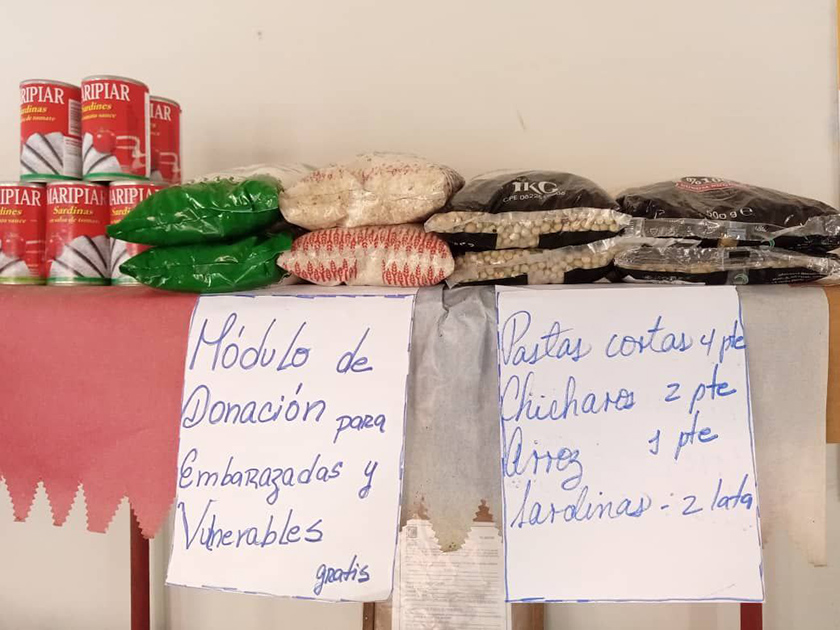 RIPIAR
ARIPIAR
IAR
Sardines
RIPIAR
MARIPIAR
Sardinas
ARIPIAR
Sardinas
1KG
500 g e
Módulo de
Donación para
Embarazadas y
Vulnerables
gratis
Pastas cortas 4 pte
Chicharos 2 pte
Arroz 1 pte
Sardinas - 2 lata